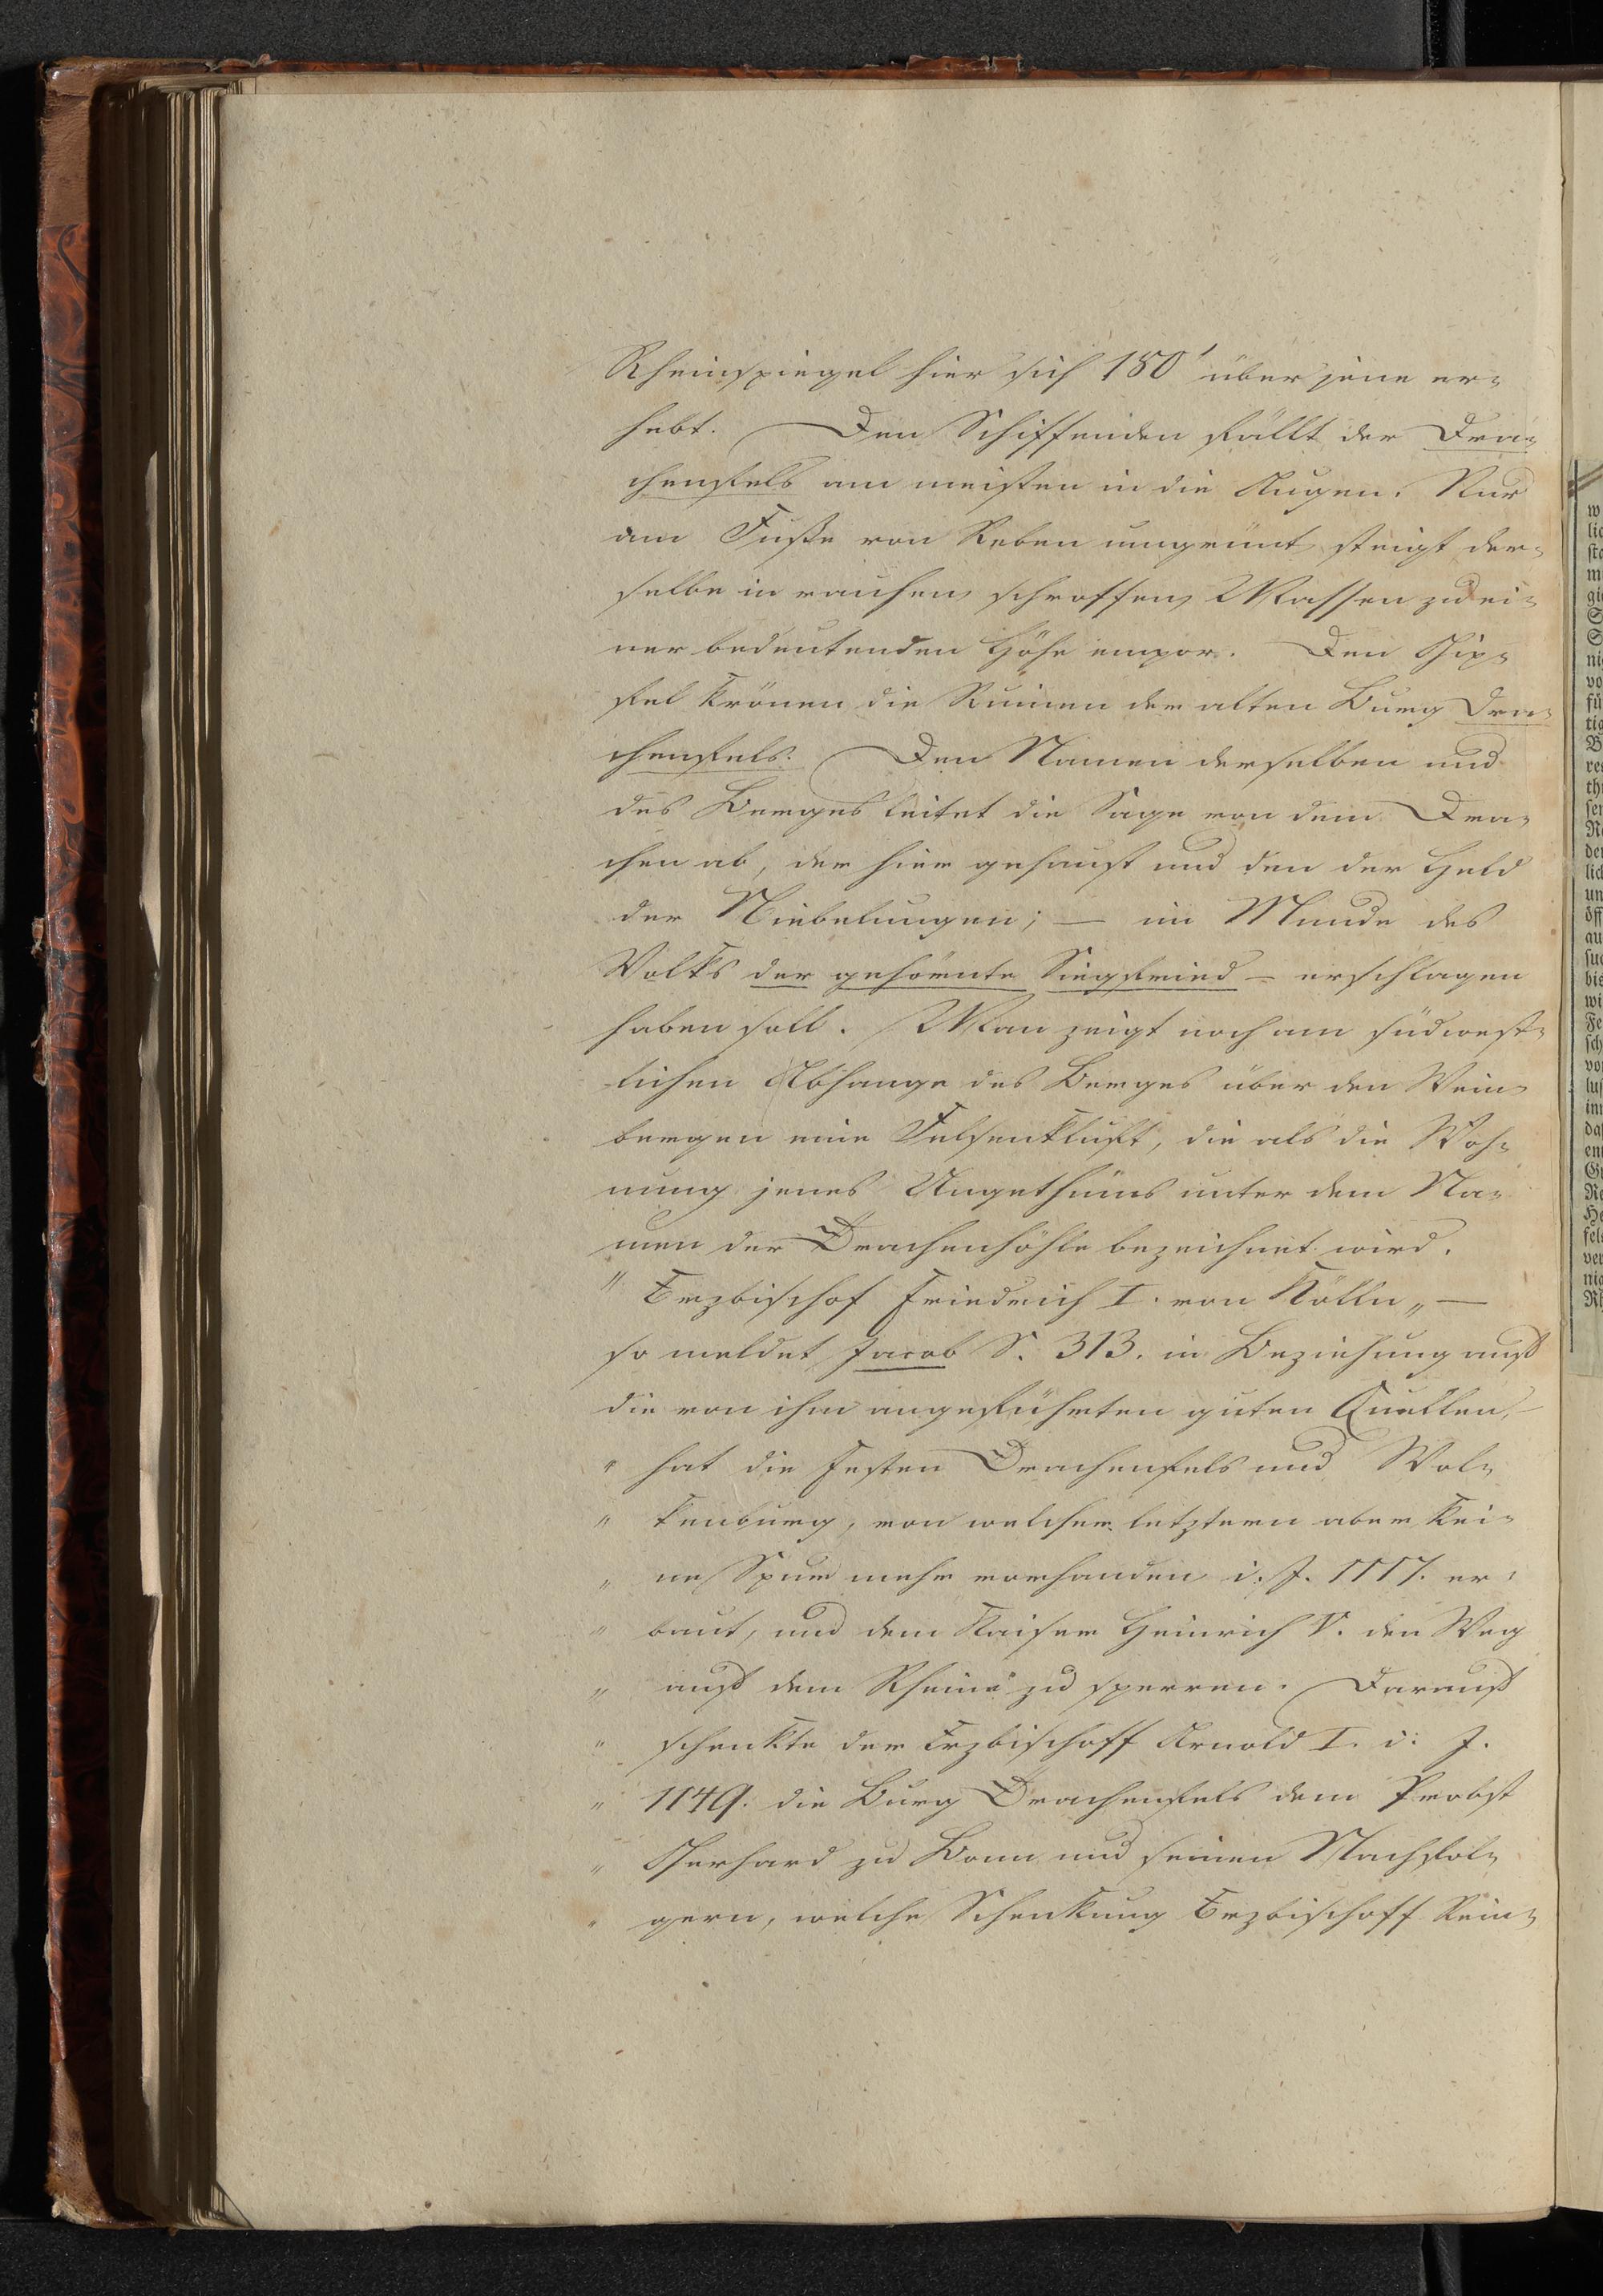 Rheinspiegel hier sich 150' über jene er-
hebt. Den Schiffenden fällt der Dra-
chenfels am meisten in die Augen. Nur
am Fuße von Reben umgrünt, steigt der-
selbe in rauhen, schroffen Massen zu ei-
ner bedeutenden Höhe empor. Den Gip-
fel krönen die Ruinen der alten Burg Dra-
chenfels. Den Namen derselben und
des Berges leitet die Sage von dem Dra-
chen ab, der hier gehaust und den der Held
der Niebelungen; — im Munde des
Volks der gehörnte Siegfried — erschlagen
haben soll. Man zeigt noch am südwest-
lichen Abhange des Berges über den Wein
bergen eine Felsenkluft, die als die Woh-
nung jenes Ungethüms unter dem Na-
men der Drachenhöhle bezeichnet wird.
" Erzbischof Friedrich I. von Kölln „ —
so meldet Jacob S. 313. in Beziehung auf
die von ihm angeführten guten Quellen,
" hat die Festen Drachenfels und Wol-
" kenburg, von welcher letztern aber kei-
" ne Spur mehr vorhanden i. J. 1117. er-
" baut, und dem Kaiser Heinrich V. den Weg
" auf dem Rheine zu sperren. Darauf
" schenkte der Erzbischoff Arnold I. i. J.
" 1149. die Burg Drachenfels dem Probst
" Gerhard zu Bonn und seinen Nachfol-
" gern, welche Schenkung Erzbischoff Rein-